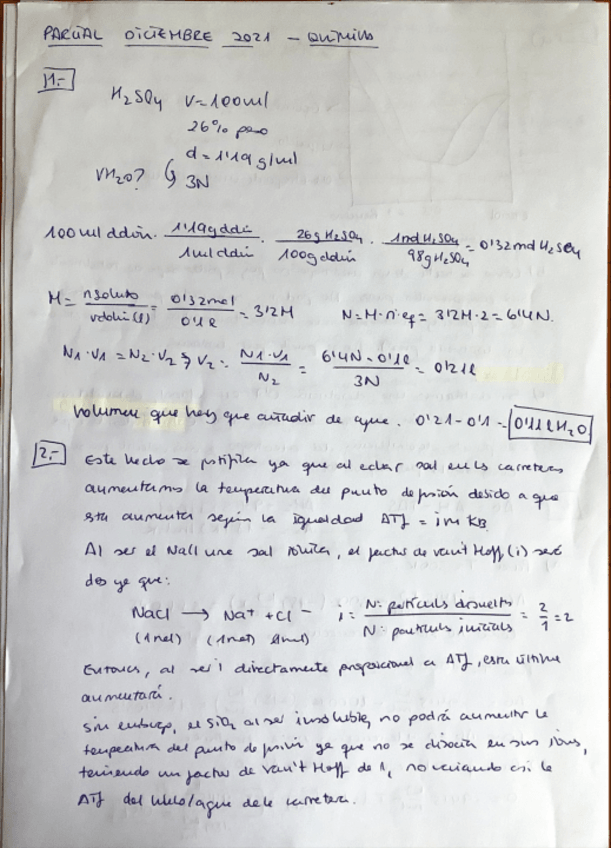 PARCIAL DICIEMBRE 2021 - QUÍMICA
1.-
H2SO4 V=100ml
26% peso
d=1'19 g/ml
VH2O? 3N
100 ml ddón · 1'19g ddón / 1ml ddón · 26g H2SO4 / 100g ddón · 1mol H2SO4 / 98g H2SO4 = 0'32 mol H2SO4
M = nsoluto / vddón(l) = 0'32mol / 0'1 l = 3'2M N=M·nºef = 3'2M·2 = 6'4N.
N1·V1 = N2·V2 → V2 = N1·V1 / N2 = 6'4N·0'1l / 3N = 0'21l
Volumen que hay que añadir de agua. 0'21-0'1 = 0'11 l H2O
2.-
Este hecho se justifica ya que al echar sal en las carreteras
aumentamos la temperatura del punto de fusión debido a que
esta aumenta según la igualdad ΔTf = i·m·
Al ser el NaCl una sal iónica, el factor de van't Hoff (i) será
dos ya que:
NaCl → Na+ + Cl- i = Nº partículas disueltas / Nº partículas iniciales = 2/1 = 2
(1mol) (1mol) 1mol)
Entonces, al ser i directamente proporcional a ΔTf, esta última
aumentará.
Sin embargo, el SiO2 al ser insoluble, no podrá aumentar la
temperatura del punto de fusión ya que no se disocia en sus iones,
teniendo un factor de Van't Hoff de 1, no variando así la
ΔTf del hielo/agua de la carretera.